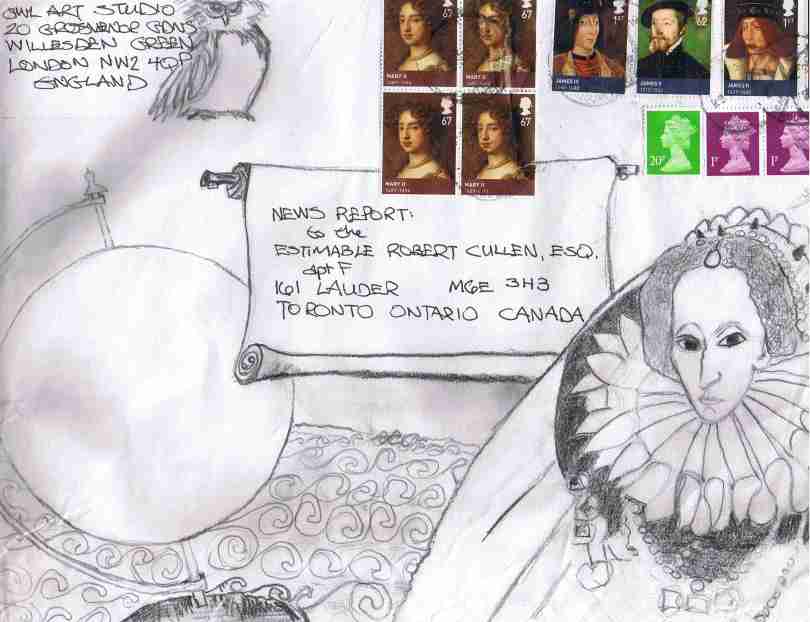 OWL ART STUDIO
20 GROSVENOR GDNS
WILLESDEN GREEN
LONDON NW2 4QP
ENGLAND
67
67
MARY II
MARY II
67
67
MARY II
MARY II
62
1st
JAMES V
20P
1st
1st
NEWS REPORT:
to the
ESTIMABLE ROBERT CULLEN, ESQ.
apt F
161 LAUDER M6E 3H3
TORONTO ONTARIO CANADA